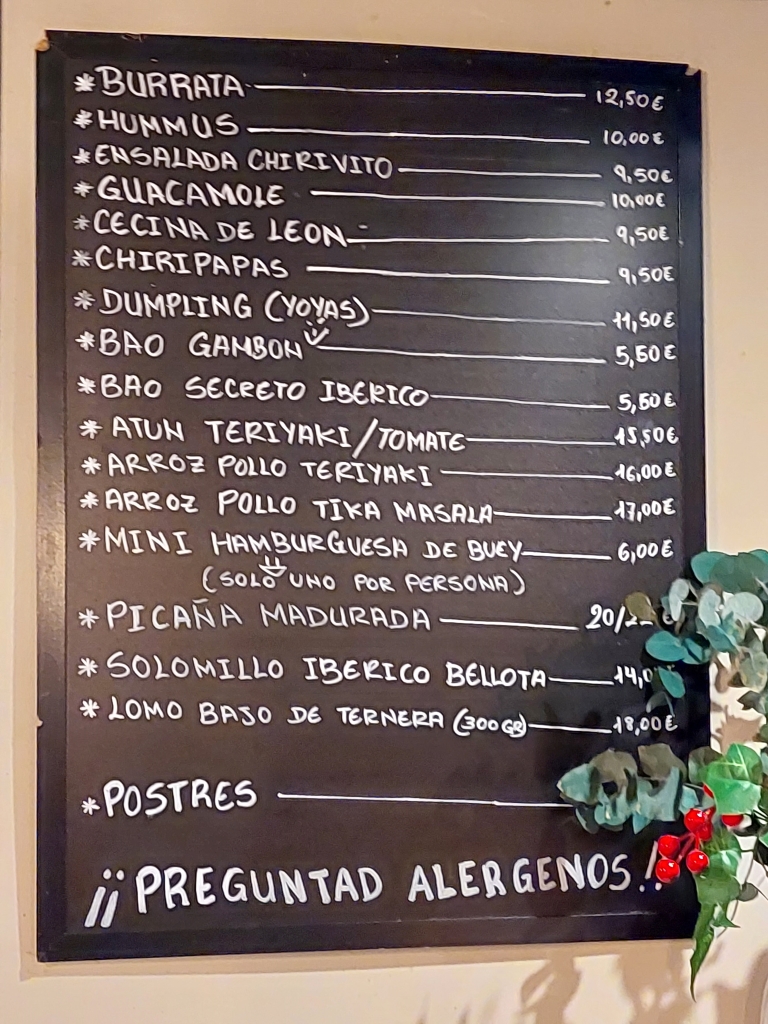 *BURRATA 12,50€
*HUMMUS 10,00€
*ENSALADA CHIRIVITO 9,50€
*GUACAMOLE 10,00€
*CECINA DE LEON 9,50€
*CHIRIPAPAS 9,50€
*DUMPLING (YOYAS) 11,50€
*BAO GAMBON 5,50€
*BAO SECRETO IBERICO 5,50€
*ATUN TERIYAKI/TOMATE 15,50€
*ARROZ POLLO TERIYAKI 16,00€
*ARROZ POLLO TIKA MASALA 17,00€
*MINI HAMBURGUESA DE BUEY 6,00€
(SOLO UNO POR PERSONA)
*PICAÑA MADURADA
*SOLOMILLO IBERICO BELLOTA
*LOMO BAJO DE TERNERA (300GR) 18,00€
*POSTRES
¡¡PREGUNTAD ALERGENOS!!